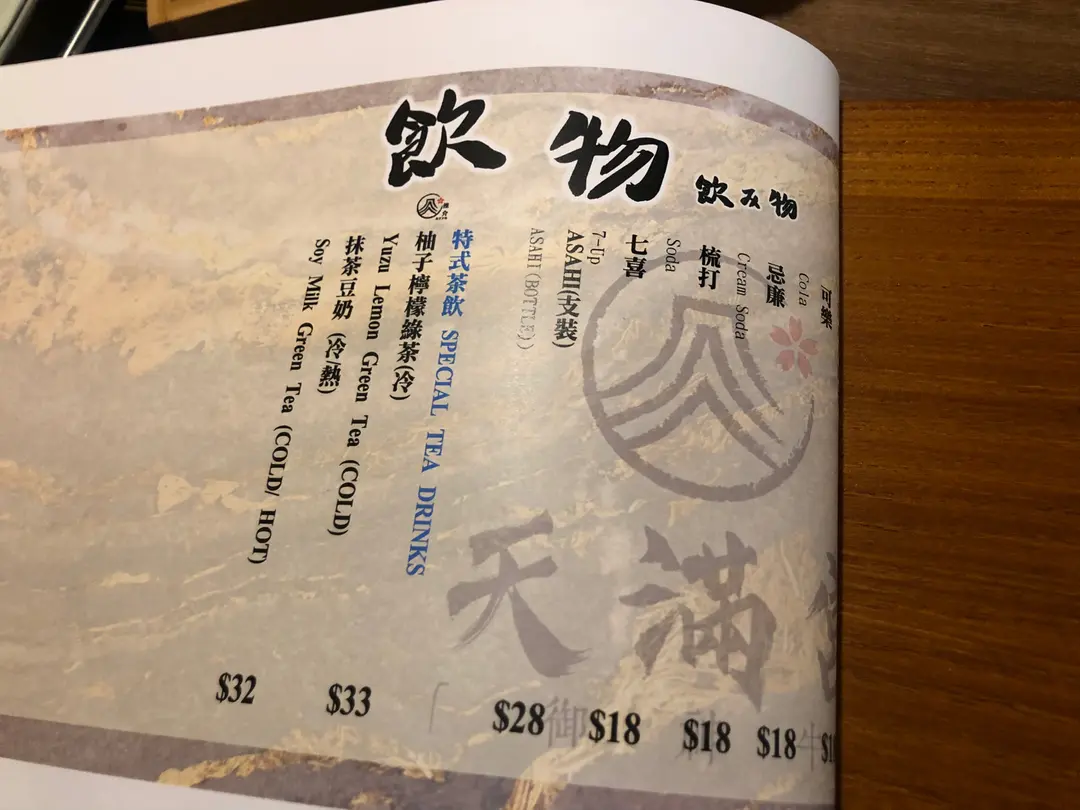 飲物 飲み物
可樂
Cola
忌廉
Cream Soda
$18
梳打
Soda
$18
七喜
7-Up
$18
ASAHI(支裝)
ASAHI(BOTTLE))
$28
特式茶飲 SPECIAL TEA DRINKS
柚子檸檬綠茶(冷)
Yuzu Lemon Green Tea (COLD)
$33
抹茶豆奶 (冷/熱)
Soy Milk Green Tea (COLD/ HOT)
$32
天滿
御
牛